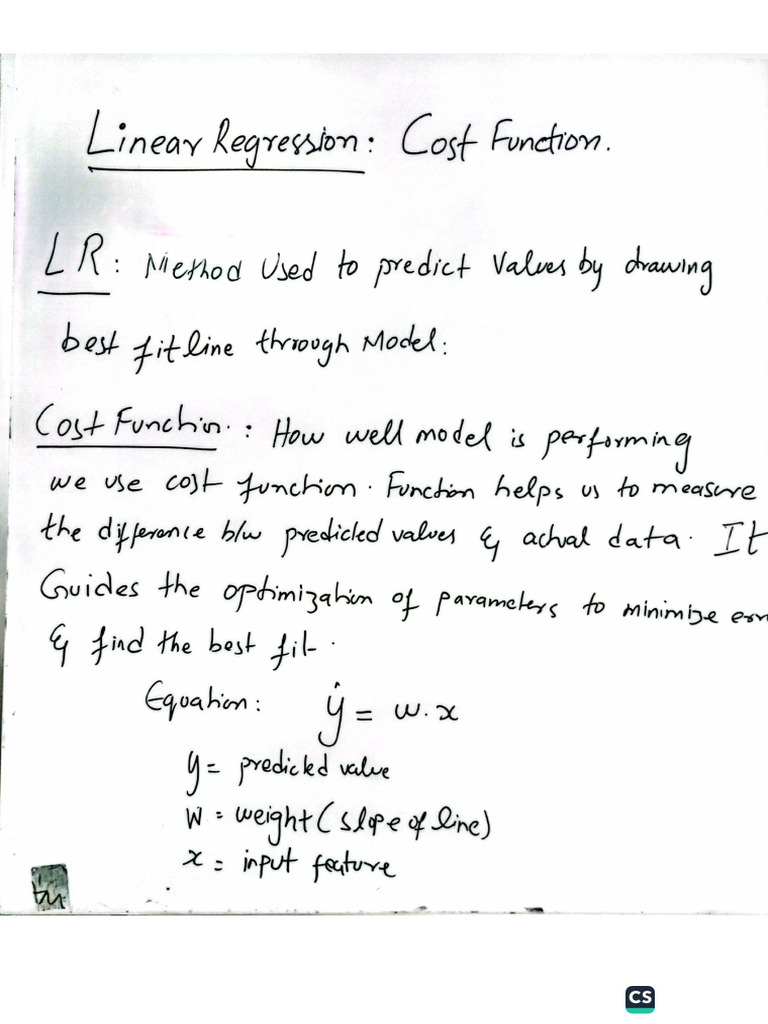 Linear Regression: Cost Function.
LR: Method Used to predict Values by drawing
best fit line through Model:
Cost Function.: How well model is performing
we use cost function. Function helps us to measure
the difference b/w predicted values & actual data. It
Guides the optimization of parameters to minimize
& find the best fit.
Equation: ẏ = w.x
y = predicted value
W = weight (slope of line)
x = input feature
CS